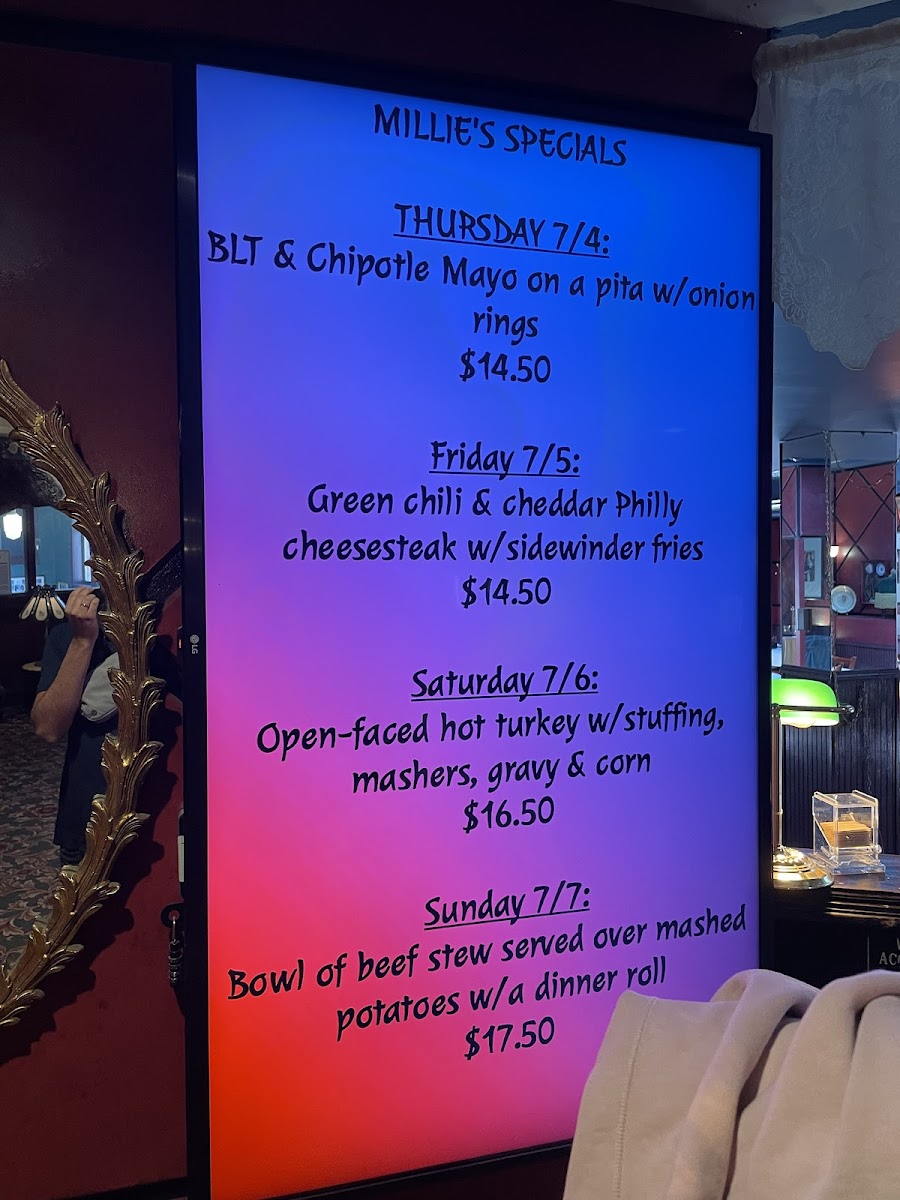 MILLIE'S SPECIALS
THURSDAY 7/4:
BLT & Chipotle Mayo on a pita w/onion
rings
$14.50
Friday 7/5:
Green chili & cheddar Philly
cheesesteak w/sidewinder fries
$14.50
Saturday 7/6:
Open-faced hot turkey w/stuffing,
mashers, gravy & corn
$16.50
Sunday 7/7:
Bowl of beef stew served over mashed
potatoes w/a dinner roll
$17.50
LG